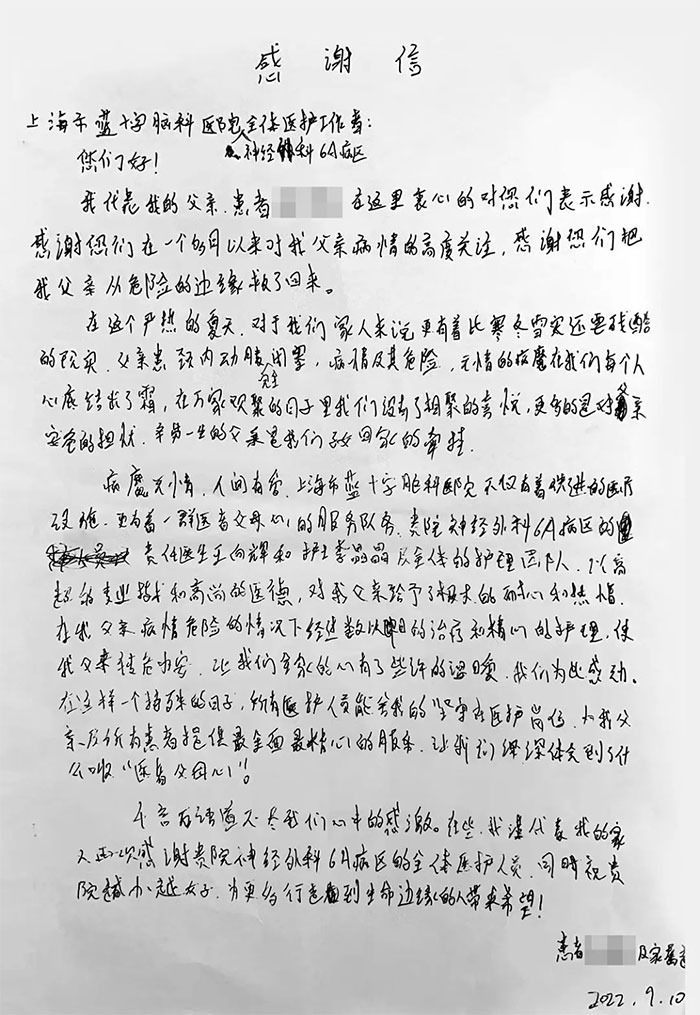 感谢信
上海市蓝十字脑科医院全体医护工作者：
神经外科6A病区
您们好！
我代表我的父亲.患者 在这里衷心的对您们表示感谢.
感谢您们在一个多月以来对我父亲病情的高度关注，感谢您们把
我父亲从危险的边缘救了回来。
在这个炎热的夏天.对于我们家人来说更有着比寒冬雪灾还要残酷
的现实.父亲患颈内动脉闭塞，病情及其危险，无情的病魔在我们每个人
完全
心底结出了霜，在万家欢聚的日子里我们没有了相聚的喜悦，更多的是对父亲
安危的担忧.辛劳一生的父亲是我们子女回家的牵挂.
病魔无情.人间有爱.上海市蓝十字脑科医院不仅有着先进的医疗
设施.更有着一群医者父母心的服务队务.贵院神经外科6A病区的
责任医生王向辉和护士李晶晶及全体的护理团队.以高
超的专业技术和高尚的医德，对我父亲给予了极大的耐心和热情.
在我父亲病情危险的情况下经过数以 日的治疗和精心的护理，使
我父亲转危为安.让我们全家的心有了些许的温暖.我们为此感动.
在这样一个特殊的日子，所有医护人员能舍我的坚守在医护岗位.为我父
亲及所有患者提供最全面最精心的服务.让我们深深体会到了什
么叫“医者父母心”！
千言万语道不尽我们心中的感激.在此.我谨代表我的家
人再次感谢贵院神经外科6A病区的全体医护人员.同时祝贵
院越办越好.为更多行走到生命边缘的人带来希望！
患者 及家属
2022.9.10